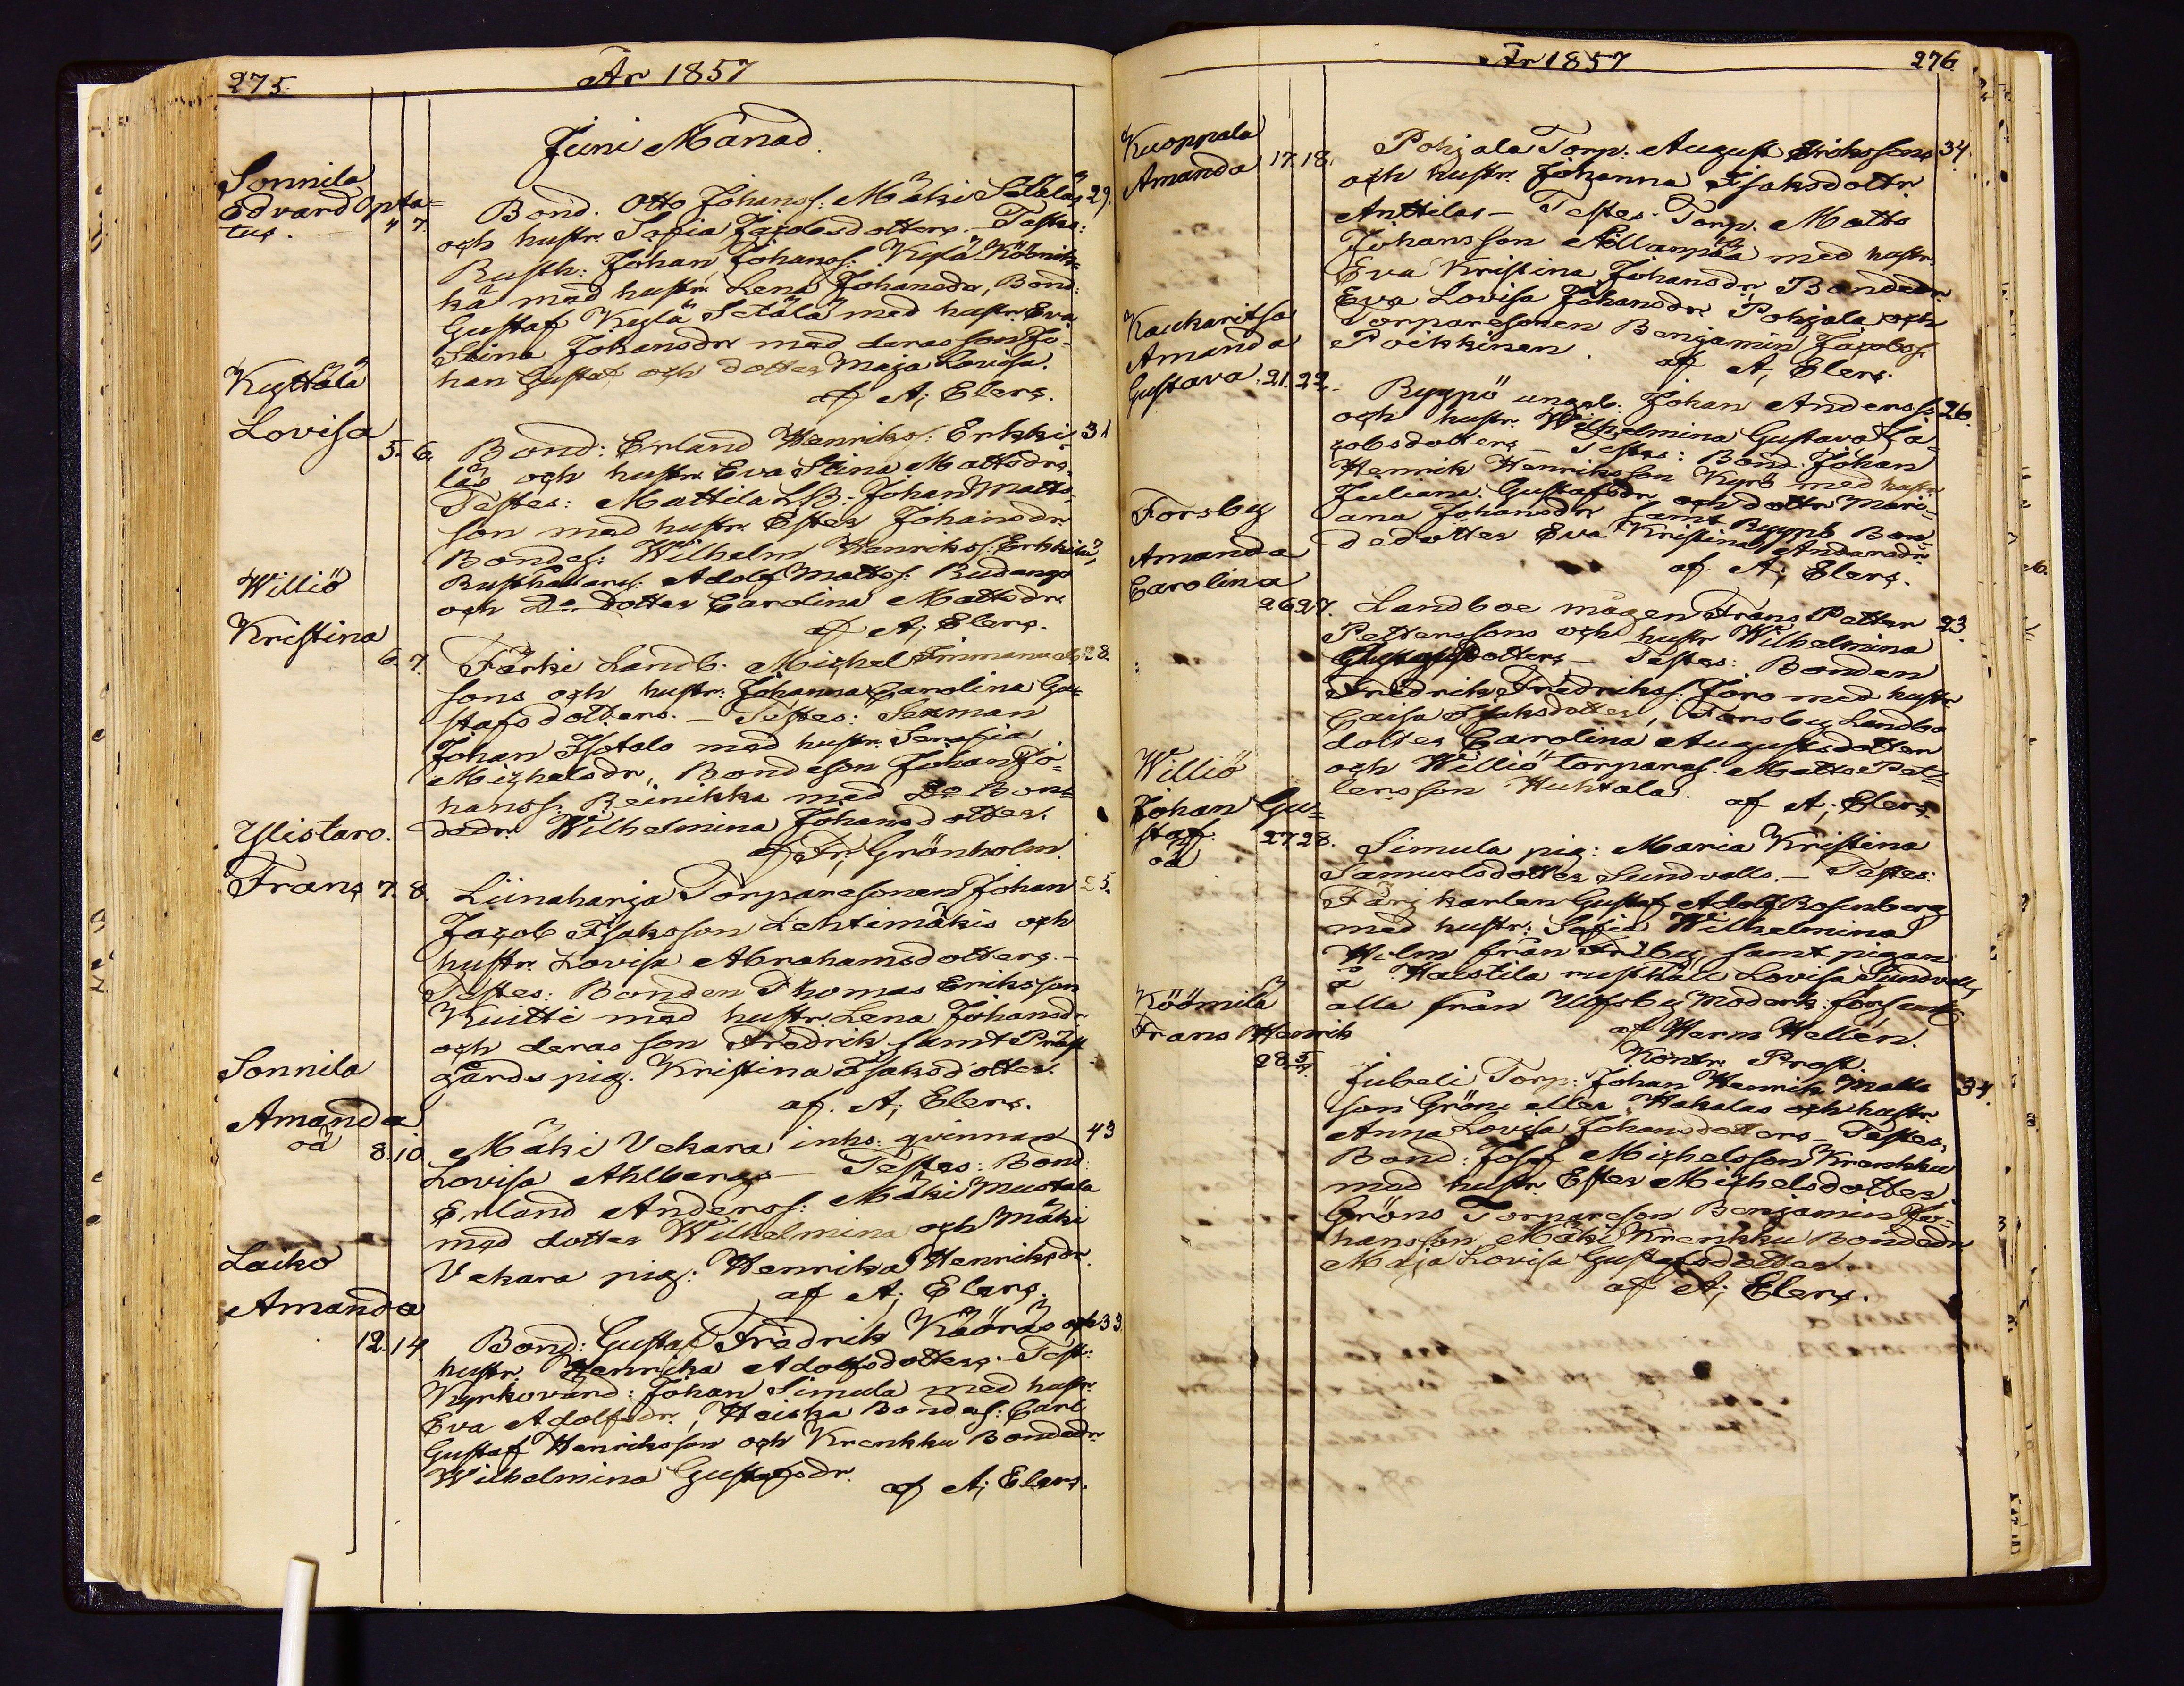 275.
År 1857
Juni Månad.
Sonnila
Edvard Opta=
tus. 4 7.
Bond. Otto Johanss: Mäki Säläläs 29.
och hustr. Sofia Jacobsdotters. – Testes:
Rusth: Johan Johanss: KyläKöönik=
kä med hustr. Lena Johansdr, Bond:
Gustaf Kylä Setälä med hustr. Eva
Stina Johansdr med deras son Jo=
han Gustaf och dotter Maja Lovisa.
af A; Elers.
Kyttälä
Lovisa
5. 6. Bond: Erland Henrikss: Erkki= 31
läs och hustr. Eva Stina Mattsdrs.
Testes: Mattila LB. Johan Matts=
son med hustr. Ester Johansdr.
Bondes: Wilhelm Henrikss: Erkkilä,
Rusthållars: Adolf Mattss: Rudanga
och Do Dotter Carolina Mattsdr.
af A; Elers.
Williö
Kristina
6. 7. Färki Landb: Michel Immanuels= 28.
sons och hustr. Johanna Carolina Gu=
stafsdotters. – Testes: Sexman
Johan Isotalo med hustr. Serafia
Michelsdr, Bondeson Johan Jo=
hanss: Reinikka med Do Bon=
dedr. Wilhelmina Johansdotter.
af Fr: Grönholm.
Ylistaro.
Frans 7. 8. Liinaharja Torparesonen Johan 25.
Jacob Isaksson Lehtimäkis och
hustr. Lovisa Abrahamsdotters. –
Testes: Bonden Thomas Eriksson
Kutti med hustr. Lena Johansdr
och deras son Fredrik samt Präst
gårds pig. Kristina Isaksdotter.
af. A; Elers.
Sonnila
Amanda
oä 8. 10. Mäki Vekara inhs: qvinnan 43
Lovisa Ahlbergs – Testes: Bond:
Erland Anderss: Mäki Mustala
med dotter Wilhelmina och Mäki
Vekara pig: Henrika Henriksdr.
af A; Elers.
Laiko
Amanda
12. 14. Bond: Gustaf Fredrik Kääräs och 33.
hustr. Henrika Adolfsdotters. Test:
Kyrkovärd: Johan Simula med hustr.
Eva Adolfsdr., Heiska Bondes: Carl
Gustaf Henriksson och Krenkku Bondedr.
Wilhelmina Gustafsdr.
af A; Elers.
År 1857
276.
Kuoppala
Amanda 17. 18. Pohjala Torp: August Erikssons 34.
och hustr. Johanna Isaksdottr
Anttilas – Testes: Torp. Matts
Johansson med hustr.
Eva Kristina Johansdr, Bondedr.
Eva Lovisa Johansdr Pohjala och
Torparesonen Benjamin Jacobss:
Poikkinen.
af A; Elers.
Kaukaritsa
Amanda
Gustava. 21. 22. Ryypö ungsb: Johan Anderss:s 26.
och hustr. Wilhelmina Gustava Ja=
cobsdotters – Testes: Bond. Johan
Henrik Henriksson Kyrö med hustr.
Juliana Gustafsdr och dottr Mari=
ana Johansdr samt Ryypö Bon=
dedotter Eva Kristina Andersdr.
af. A; Elers.
Forsby
Amanda
Carolina
26. 27. Landboe mågen Frans Petter 23.
Petterssons och hustr Wilhelmina
Gustafsdotters – Testes: Bonden
Fredrik Fredrikss: Joro med hustr.
Caisa Isaksdotter, Forsby Landbo
dotter Carolina Augustsdotter
och Williö torpares. Matts Pet=
tersson Huhtala.
af A; Elers.
Williö
Johan Gus=
staf.
oä 27. 28. Simula pig: Maria Kristina
Samuelsdotter Sundvalls. – Testes:
Färjkarlen Gustaf Adolf Rosenberg
med hustr: Sofia Wilhelmina
Holm från Friby, samt pigan
å Haistila rusthåll Lovisa Sundvall,
alla från Ulfsby Moderk: förs:
af Herm Hellén.
Kontr. Prost.
Köömilä
Frans Henrik
28 5/7. Jubeli Torp: Johan Henrik Matts 34.
son Gröns eller Hakalas och hustr.
Anna Lovisa Johansdotters – Testes:
Bond: Josef Michelsson Krenkku
med hustr. Ester Michelsdotter,
Gröns Torpareson Benjamin Jo=
hansson Mäki Krenkku Bondedr
Maja Lovisa Gustafsdotter.
af A; Elers.